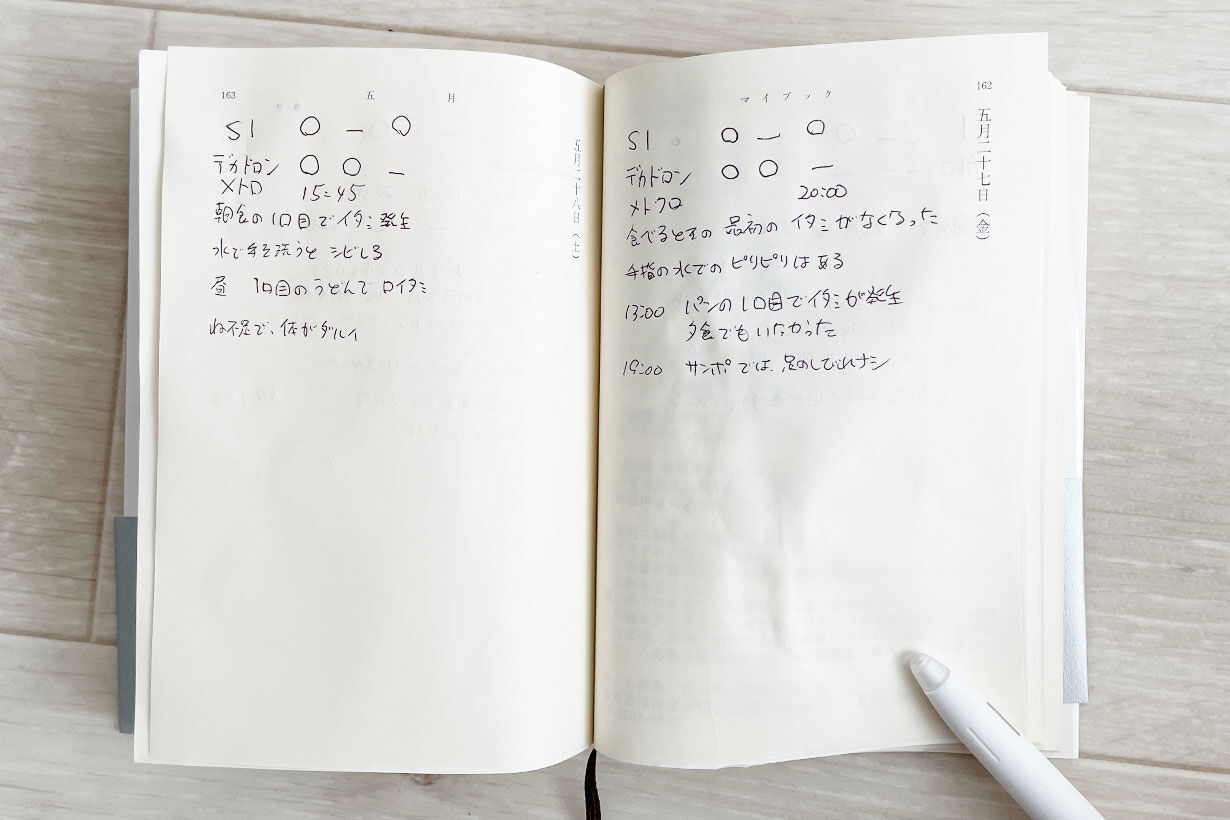 162
マイブック
五月二十七日(金)
S1 ○ — ○
デカドロン ○ ○ —
メトクロ 20:00
食べるときの最初のイタミがなくなった
手指の水でのピリピリはある
13:00 パンの1口目でイタミが発生
夕食でもいたかった
19:00 サンポでは、足のしびれナシ
163
五月
五月二十八日(土)
S1 ○ — ○
デカドロン ○ ○ —
メトロ 15:45
朝食の1口目でイタミ発生
水で手を洗うとシビレる
昼 1口目のうどんで口イタミ
ね不足で、体がダルイ